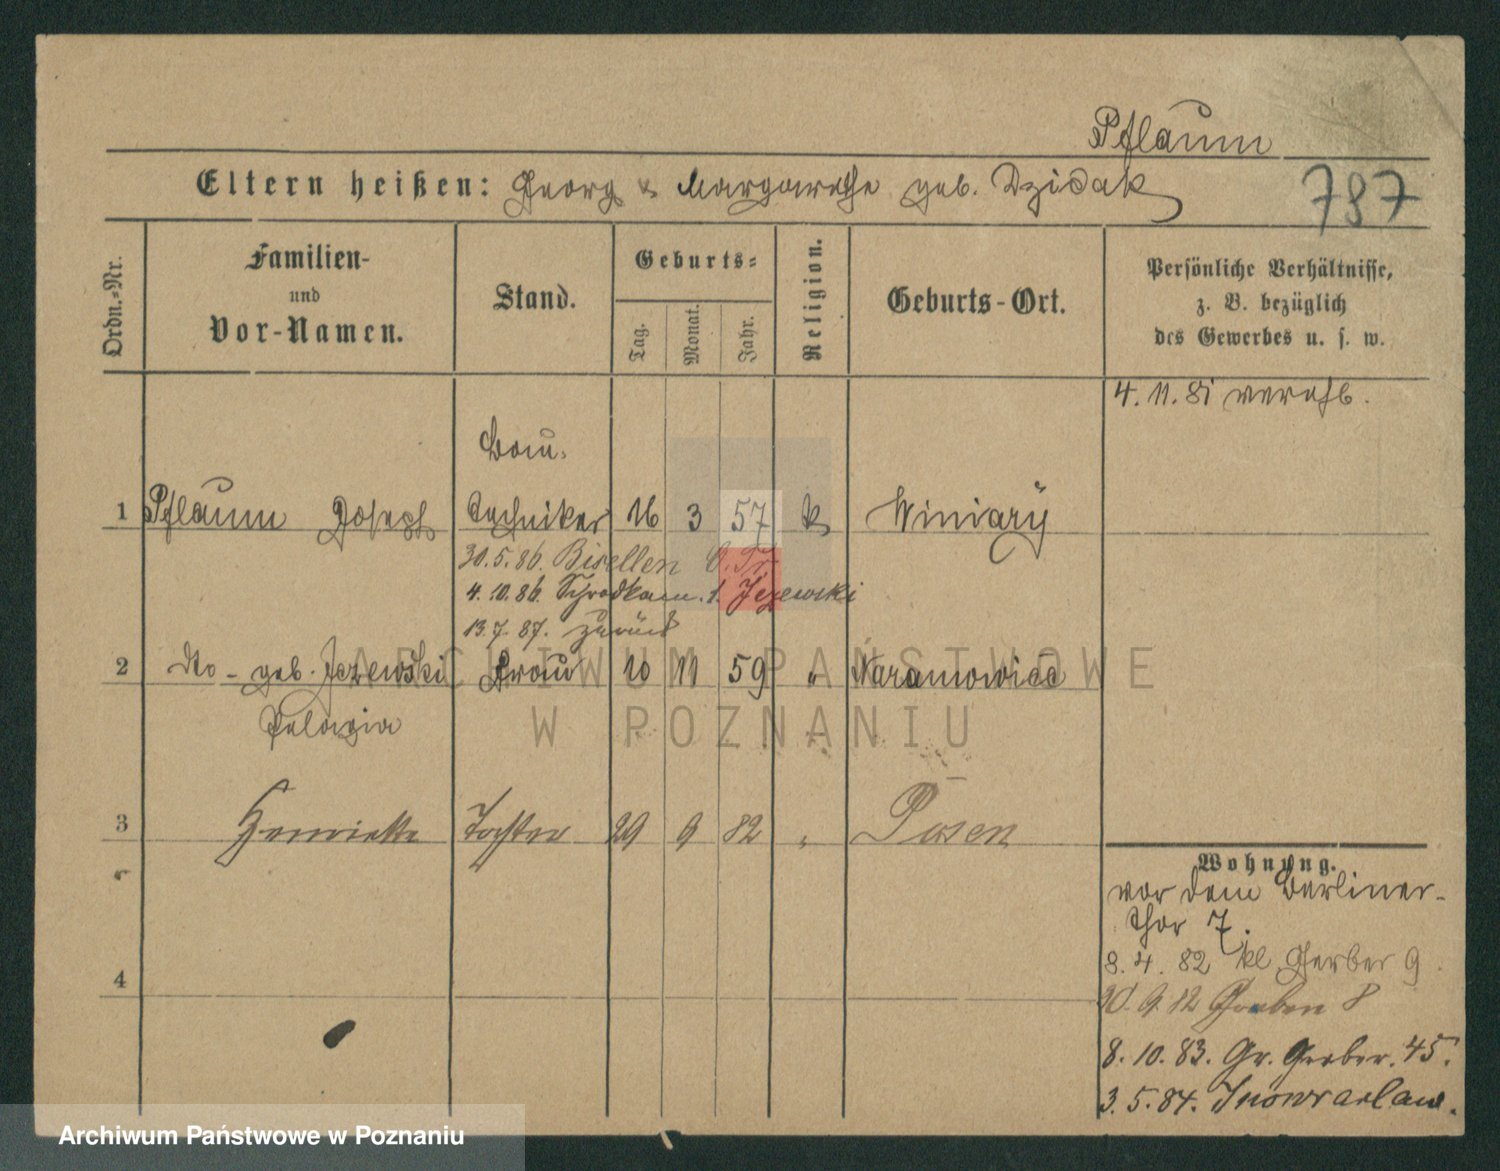 Pflaum
Eltern heißen: Georg u. Margarethe geb. Dzidak
787
Ordn.=Nr.
Familien-
und
Vor-Namen.
Stand.
Geburts=
Tag.
Monat.
Jahr.
Religion.
Geburts-Ort.
Persönliche Verhältnisse,
z. B. bezüglich
des Gewerbes u. s. w.
4. 11. 81 vereh.
Bau-
1 Pflaum Joseph Techniker 16 3 57 k Winiary
30. 5. 86. Bisellen
4. 10. 86. Schrodka Jezewski
13. 7. 87. zurück
2 do - geb. Jezewski Frau 10 11 59 " Naramowice
Pelagia
3 Henriette Tochter 29 9 82 " Posen
4
Wohnung.
vor dem Berliner-
thor 7.
8. 4. 82 kl Gerber 9.
30. 9. 82 Graben 8
8. 10. 83. Gr. Gerber. 45.
3. 5. 84. Inowrazlaw.
ARCHIWUM PAŃSTWOWE
W POZNANIU
Archiwum Państwowe w Poznaniu